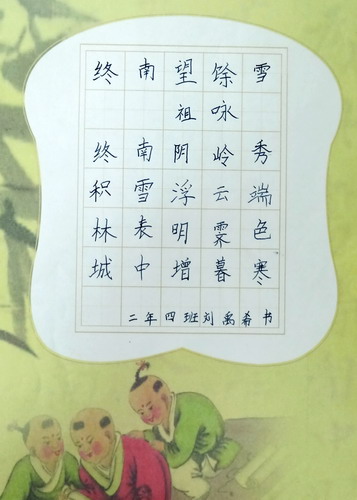 终南望馀雪
祖咏
终南阴岭秀
积雪浮云端
林表明霁色
城中增暮寒
二年四班刘禹希书